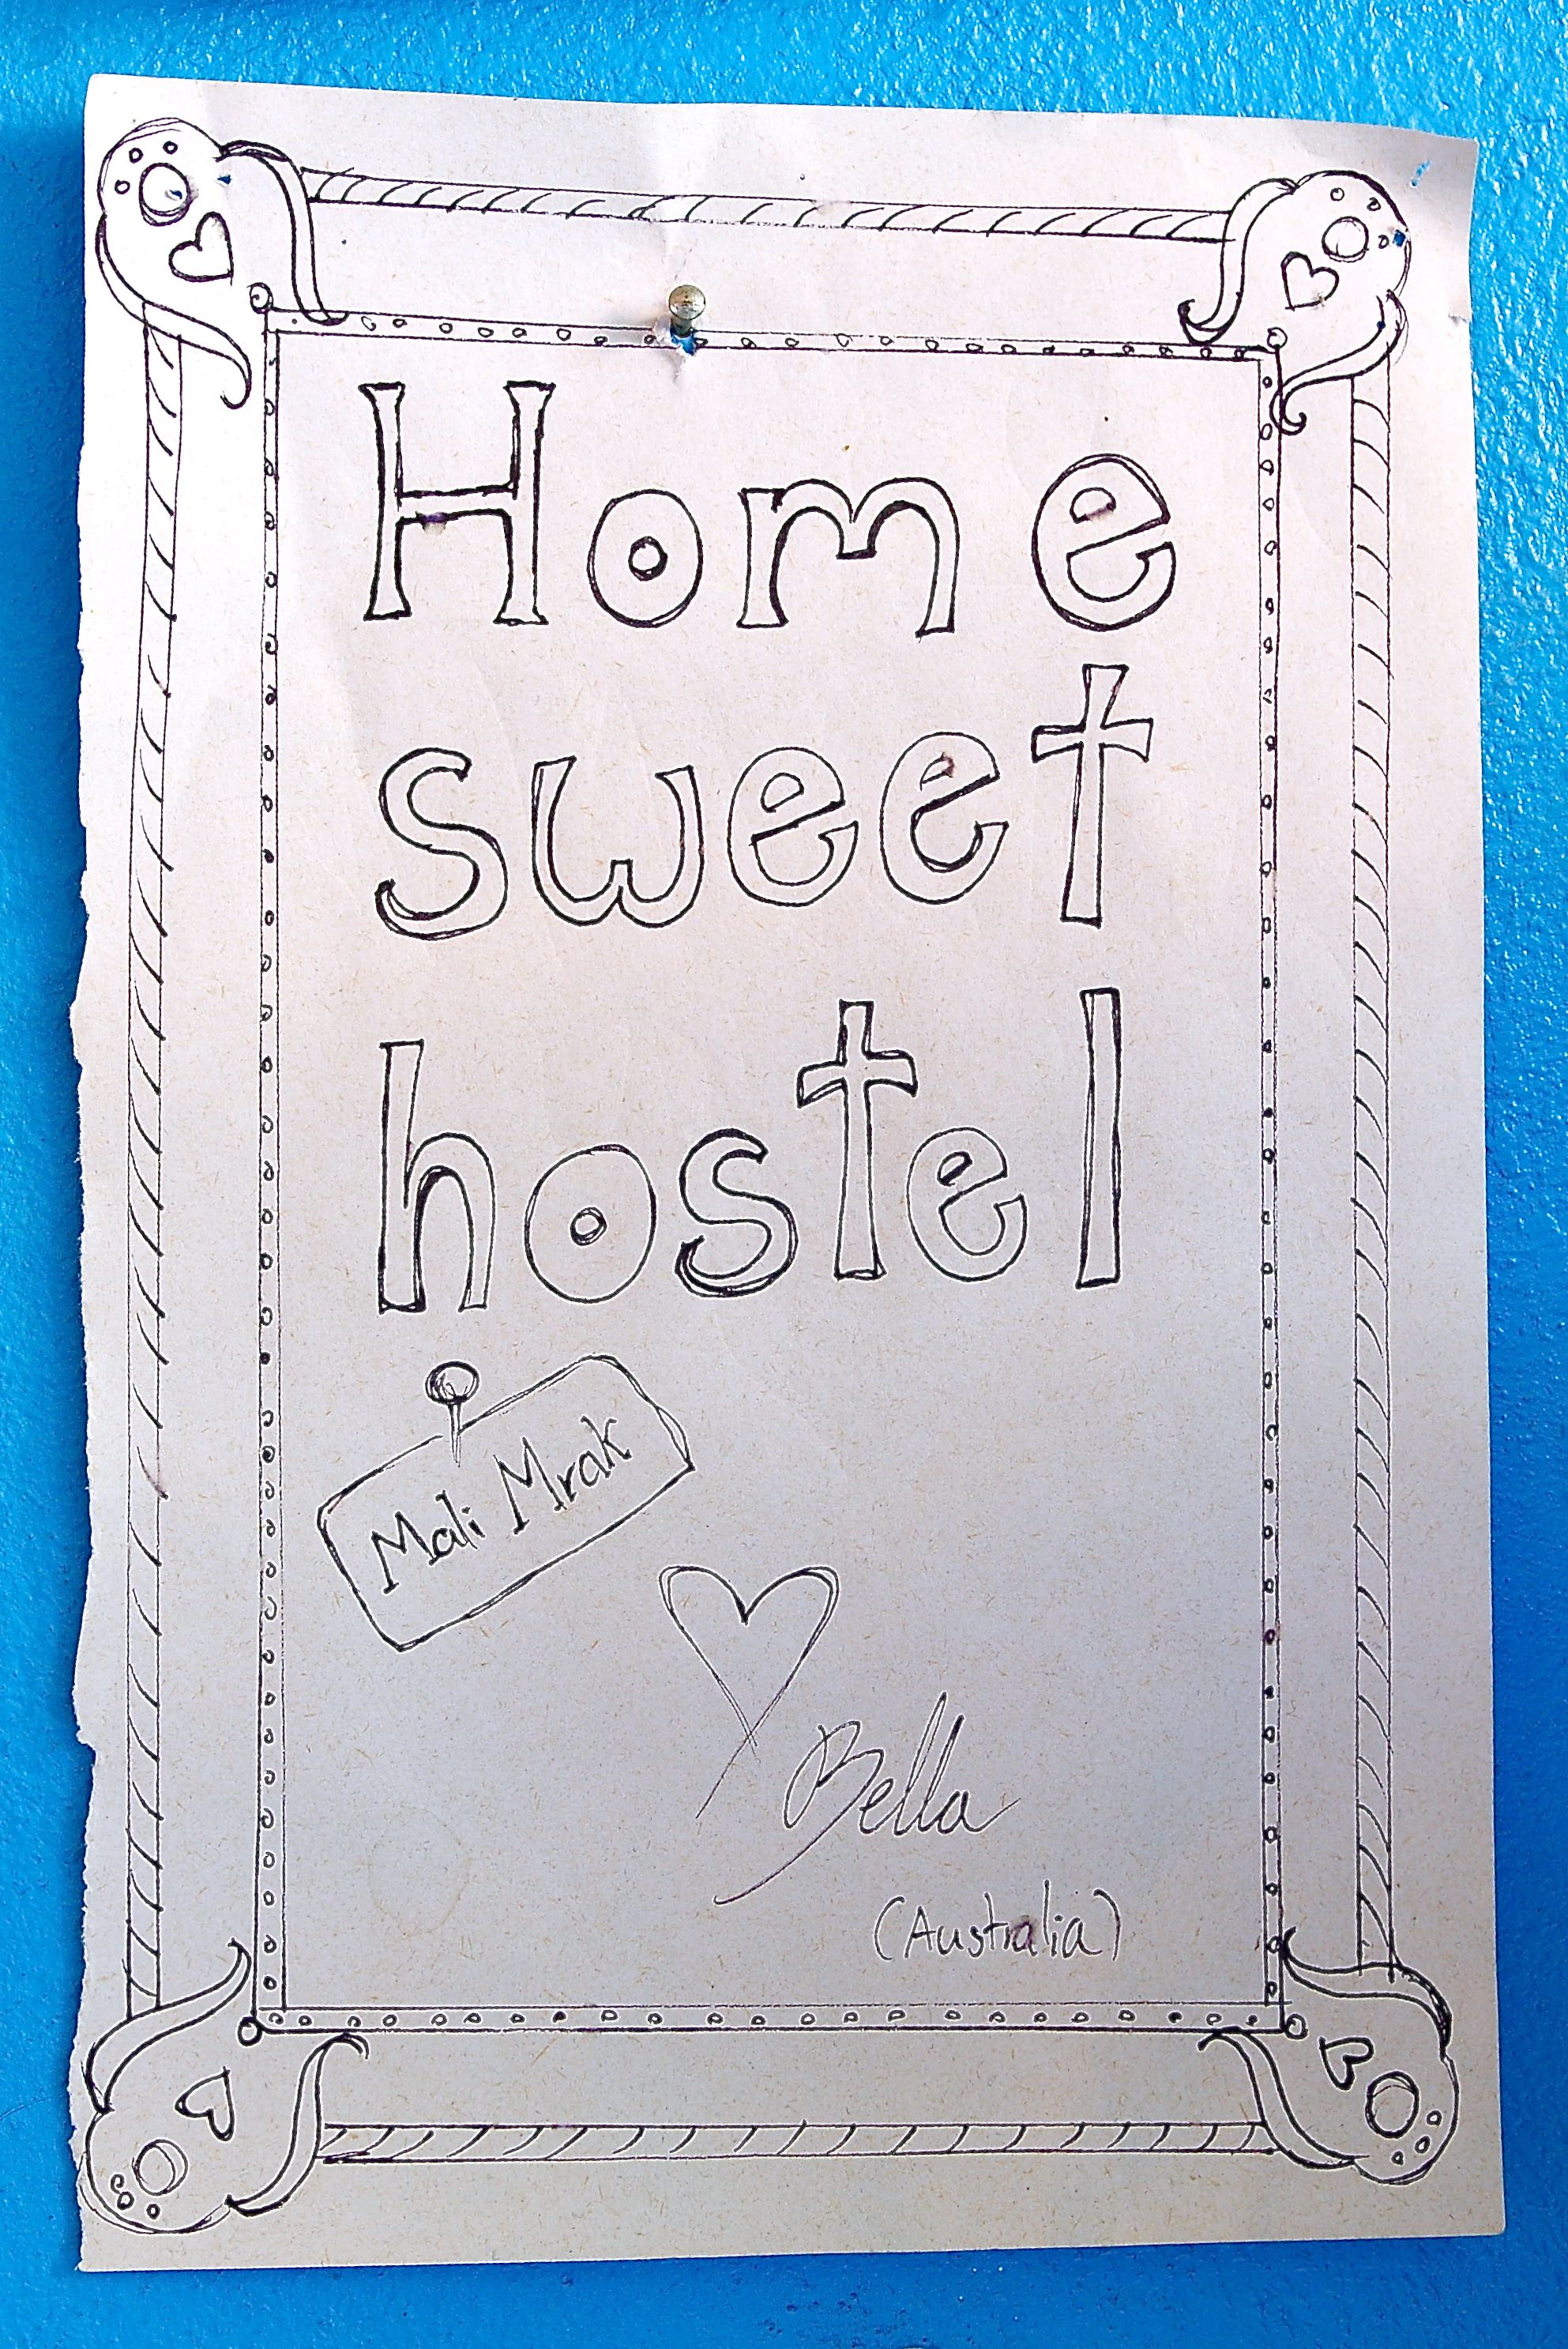 Home
sweet
hostel
Mali Mrak
Bella
(Australia)